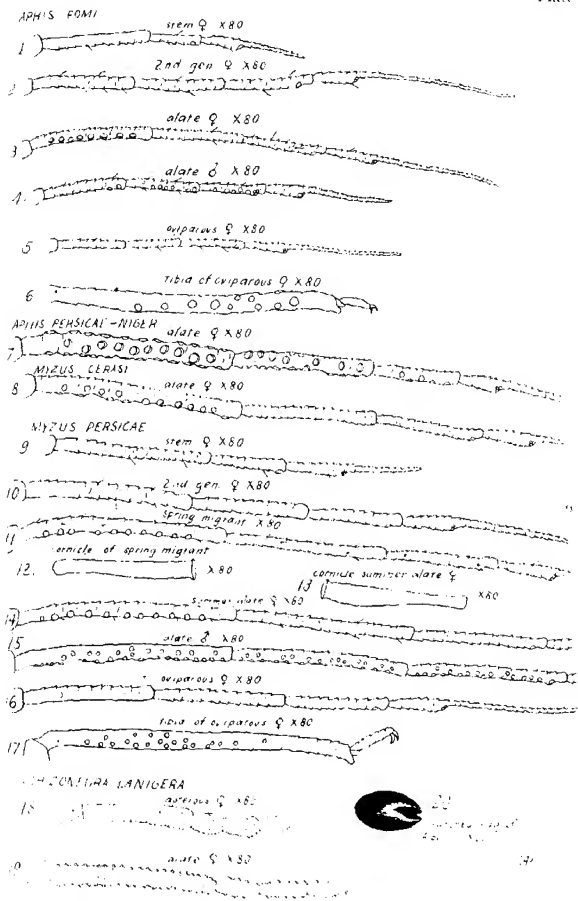 APHIS POMI
1 stem ♀ X80
2 2nd gen ♀ X80
3 alate ♀ X80
4. alate ♂ X80
5 oviparous ♀ X80
6 Tibia of oviparous ♀ X80
APHIS PERSICAE-NIGER
7 alate ♀ X80
MYZUS CERASI
8 alate ♀ X80
MYZUS PERSICAE
9 stem ♀ X80
10 2nd gen. ♀ X80
11 spring migrant X80
12. cornicle of spring migrant X80
13 cornicle summer alate ♀ X80
14 summer alate ♀ X80
15 alate ♂ X80
16 oviparous ♀ X80
17 tibia of oviparous ♀ X80
LANIGERA
18 apterous ♀ X80
20
alate ♀ X80